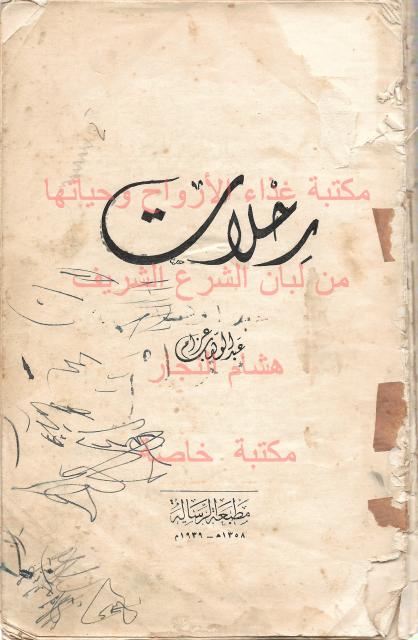 مكتبة غذاء الأرواح وحياتها
رحلات
من لبان الشرع الشريف
عبد الوهاب عزام
هشام النجار
مكتبة خاصة
مطبعة الرسالة
١٣٥٨ هـ - ١٩٣٩ م